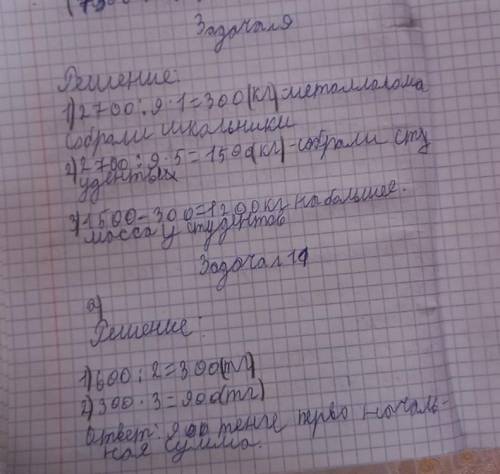 Задача 9
Решение:
1) 2700 : 9 · 1 = 300 (кг) - металлолома
собрали школьники
2) 2700 : 9 · 5 = 1500 (кг) - собрали сту
уденты
3) 1500 - 300 = 1200 кг на большее.
масса у студентов
Задача 11
а)
Решение:
1) 600 : 2 = 300 (тг)
2) 300 · 3 = 900 (тг)
Ответ: 900 тенге перво началь-
ная сумма.